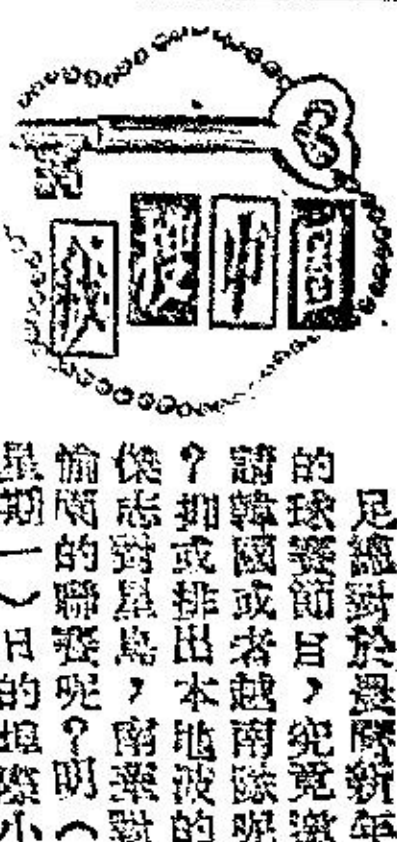 足總對於農曆新年
的球賽節目，究竟邀
請韓國或者越南隊呢
？抑或排出本地波的
傑志對星島，南華對
愉園的聯賽呢？明（
星期一）日的埠際小